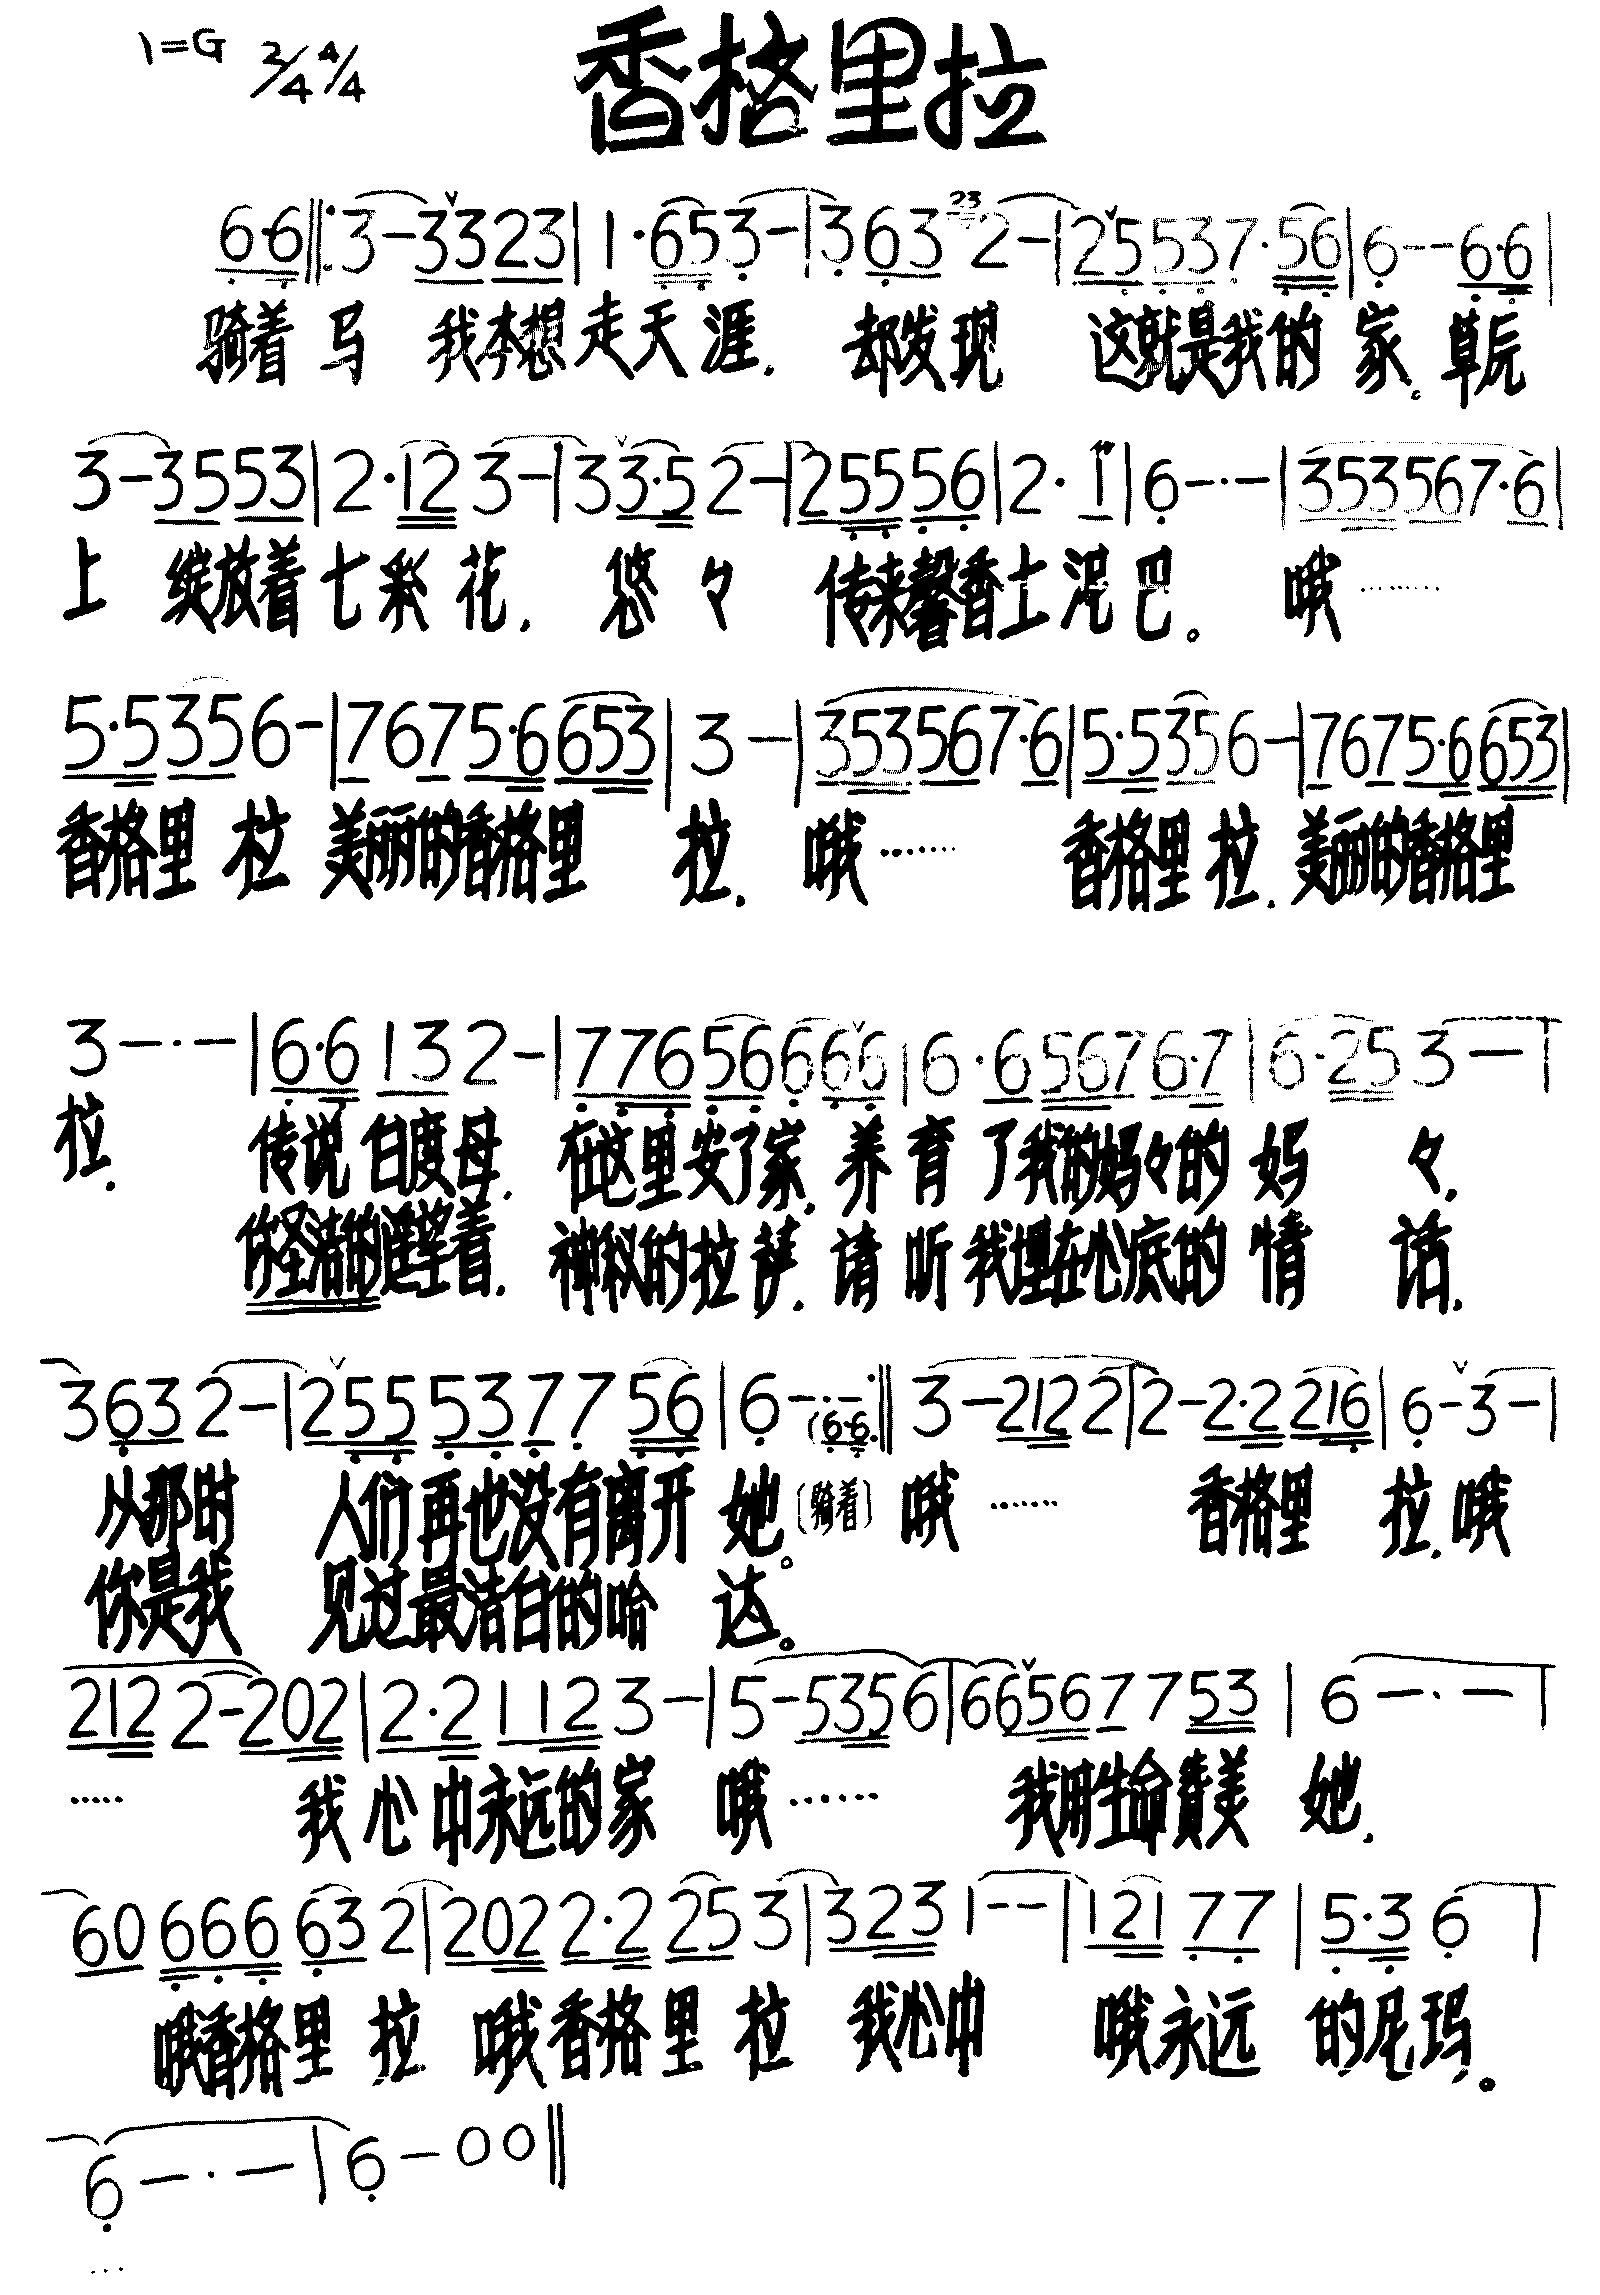 香格里拉
1=G 2/4 4/4
6·6‖:3-3323|1·653-|363 23 2-|255537·56|6--6·6|
骑着马 我本想走天涯. 却发现 这就是我的家。草原
3-3553|2·123-|33·52-|255556|2·1|6-·-|353567·6|
上 绽放着七彩花. 悠々 传来馨香土泥巴。 哦……
5·5356-|7675·6653|3-|353567·6|5·5356-|7675·6653|
香格里拉 美丽的香格里 拉. 哦…… 香格里拉. 美丽的香格里
3-·-|6·6132-|77656666|6·65676·7|6·253-|
拉. 传说白度母. 在这里安了家. 养育了我的妈々的妈 々.
你圣洁的遥望着. 神秘的拉萨. 请听我埋在心底的情 话.
3632-|255537756|6-·-(6·6:‖3-2122|2-2·2216|6-3-|
从那时 人们再也没有离开她。(骑着) 哦…… 香格里 拉. 哦
你是我 见过最洁白的哈 达。
2122-202|2·21123-|5-5356|66567753|6-·-|
…… 我心中永远的家 哦…… 我用生命赞美 她.
60666632|2022·2253|3231--|12177|5·36|
哦香格里拉 哦香格里拉 我心中 哦永远 的尼玛。
6-·-|6-00‖
…